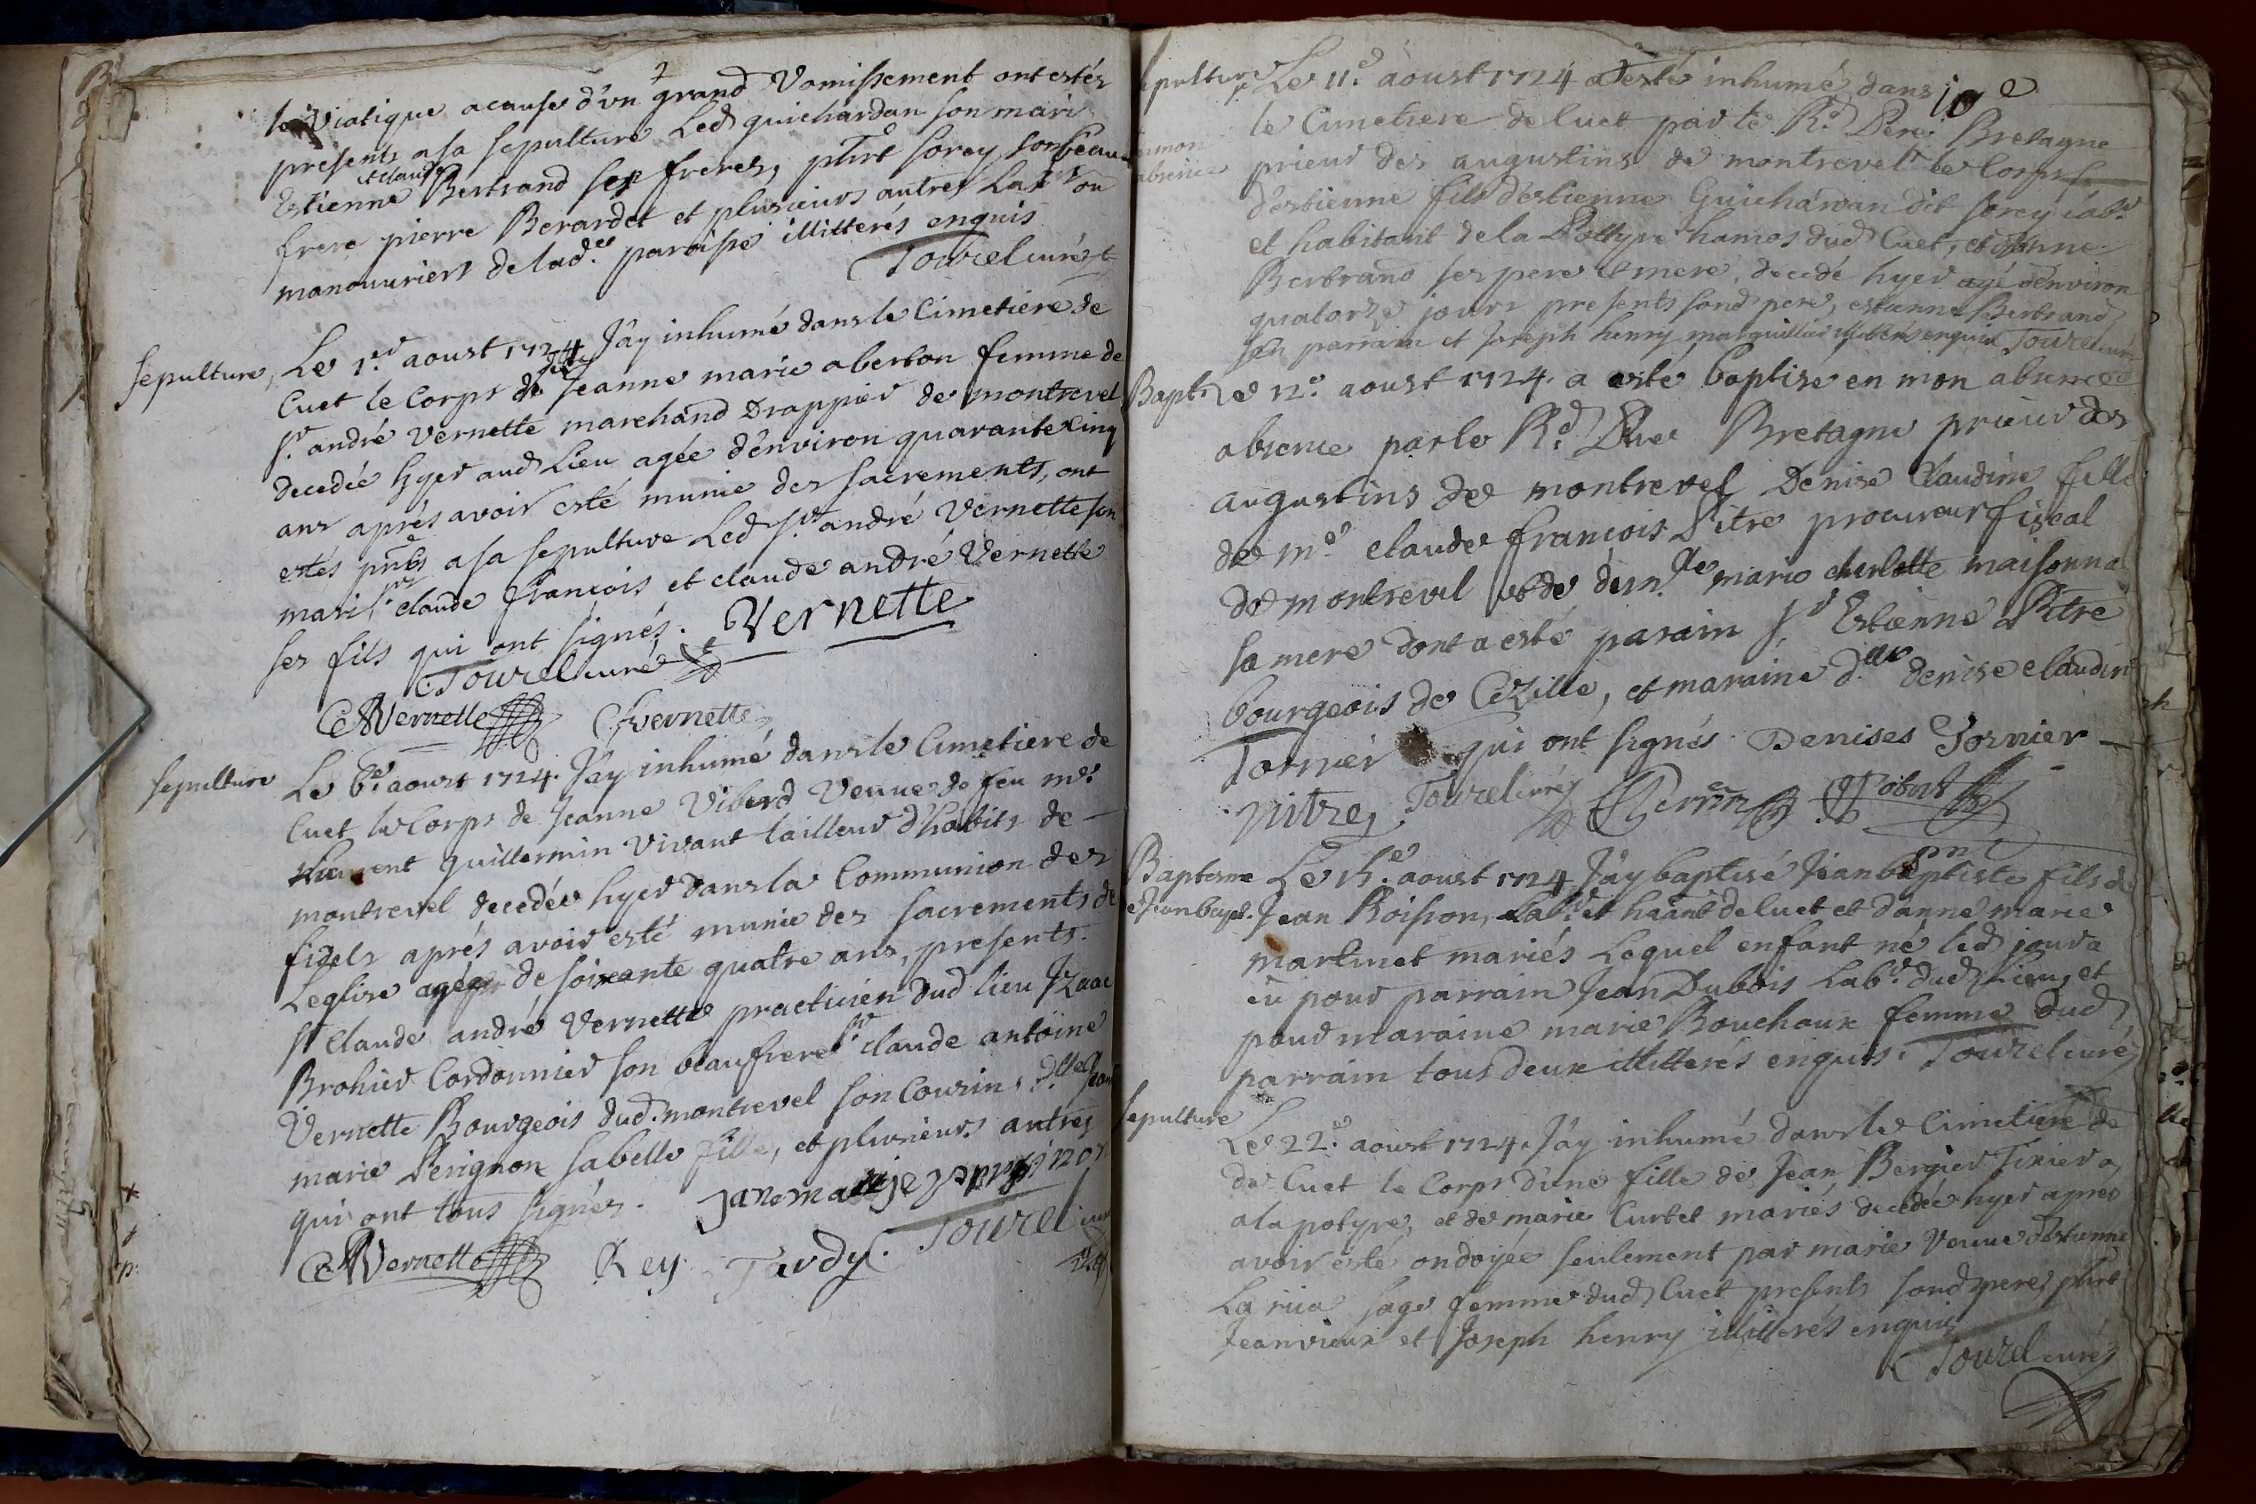 le Viatique a cause d'vn grand Vomissement ont estés
presents a sa sepulture Led guichardan son mari
Estienne et claude Bertrand ses freres, phrt sorey son beau
frere pierre Berardet et plusieurs autres Labrs ou
manouuriers de lade paroisse illitterés enquis
Tourel curé
sepulture, Le 1er aoust 1724 J'ay inhumé dans le Cimetiere de
Cuet le Corps de Jeanne marie aberton femme de
sr andré Vernette marchand Drappier de montrevel
decedée hyer aud Lieu agée d'environ quarante Cinq
ans aprés avoir esté munie des sacrements, ont
estés pnts a sa sepulture Led sr andré Vernette son
mari sr claude françois et claude andré Vernette
ses fils qui ont signés. Vernette
Tourel curé
CAVernette Cfvernette
sepulture Le 6e aoust 1724. J'ay inhumé dans le Cimetiere de
Cuet le Corps de Jeanne Viberd Veuue de feu me
guillermin Vivant tailleur d'habits de
montrevel decedée hyer dans la Communion des
fidels aprés avoir esté munie des sacrements de
Leglise agée de soixante quatre ans, presents.
sr Claude andré Vernette practicien dud lieu Jzaac
Brohier Cordonnier son beaufrere sr claude antoine
Vernette Bourgeois dud. montrevel son Cousin, dlle Jeanne
marie Perignon sa belle fille, et plusieurs autres
qui ont tous signés. Jane marije
CAVernette Rey Tardy. Tourel curé
10e
sepulture Le 11e aoust 1724 a esté inhumé dans
en mon absence le Cimetiere de Cuet par le Rd Pere Bretagne
prieur des augustins de montrevel le Corps
d'estienne fils d'estienne Guichardan dit sorey labr
et habitant de la Pottyre hameos dud Cuet, et d'anne
Bertrand ses pere et mere, decedé hyer agé d'environ
quatorze jours presents sond pere, estienne Bertrand
son parrain et Joseph henry marguillier illitterés enquis Tourel curé
Bapt. Le 12e aoust 1724. a esté baptisé en mon absence
absence par le Rd Pere Bretagne prieur des
augustins de montrevel Denise Claudine fille
de me claude françois Pitre procureur fiscal
de montrevel et de demlle marie charlotte maisonna
sa mere dont a esté parain sr Estienne Pitre
bourgeois de Cezille, et maraine dlle denise claudine
Tornier qui ont signés. Denises Tornier
pitre, Tourel curé Perrin Robert
Baptesme de Jean bapt. Le 15e aoust 1724 J'ay baptisé Jean baptiste fils de
Jean Boisson, Labr et haant de Cuet et d'anne marie
martinet mariés Lequel enfant né led jour a
eu pour parrain Jean Dubois Labr dud Lieu, et
pour maraine marie Bouchoux femme dud
parrain tous deux illitterés enquis. Tourel curé
sepulture Le 22e aoust 1724. J'ay inhumé dans le Cimetiere de
de Cuet le Corps d'une fille de Jean Bergier Tixier
a la potyre, et de marie Curtet mariés decedée hyer aprés
avoir esté ondoyée seulement par marie Veuue d'estienne
La rua sage femme dud Cuet presents sond pere, phrt
Jeanvieux et Joseph henry illitterés enquis
Tourel curé